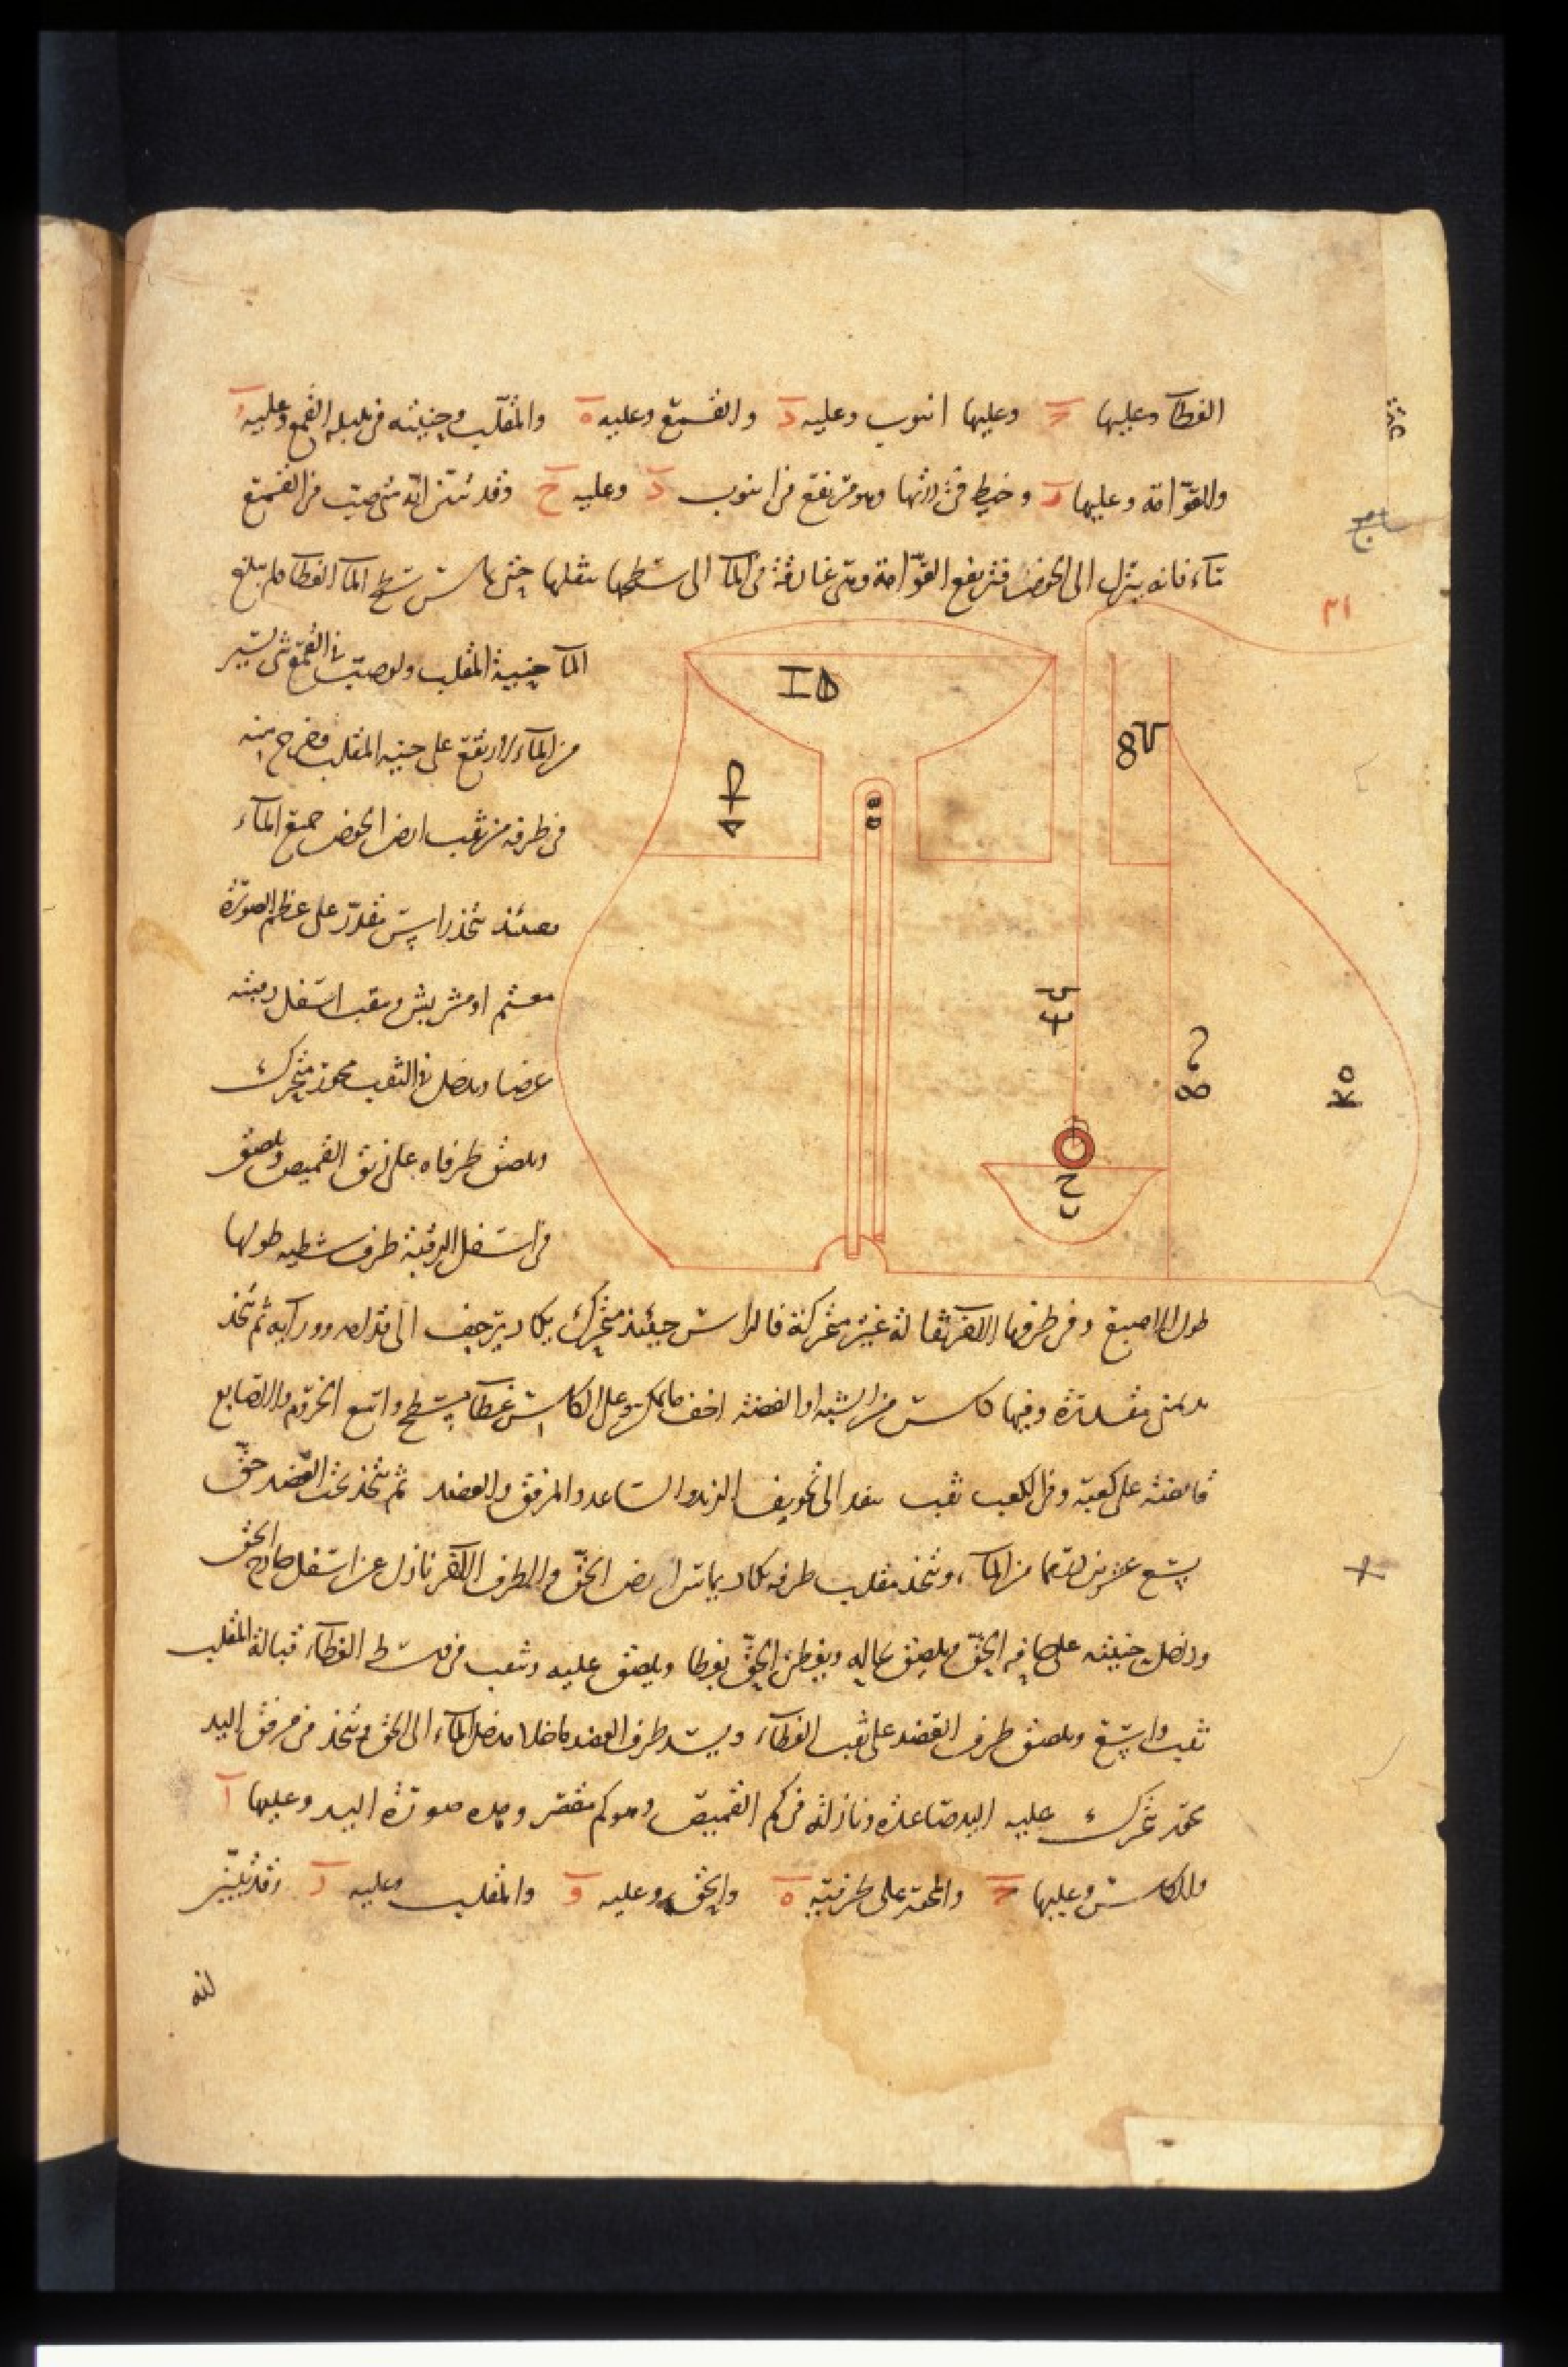 الغطاء وعليها ح وعليها انبوب وعليه د والقمع وعليه ه والمقلب وجنبته في بلبلة القمع وعليه و
والعوامة وعليها وخيط في رزتها وهو مرتفع في انبوب د وعليه ح وقد تبين انه متى صب في القمع
ماء فانه ينزل الى الحوض فترتفع العوامة وهي غارقة في الماء الى سطحها بثقلها حتى يماس سطح الماء الغطاء فلم يبلغ
الماء جنبة المقلب ولو صب في القمع شي يسير
من الماء لارتفع على جنبة المقلب وخرج منه
في طرفه من ثقب ارض الحوض جميع الماء
فحينئذ تتخذ راس مقدر على عظم الصورة
معمم او مشربش وثقب اسفل رقبته
عرضا ويدخل في الثقب محور متحرك
ويلصق طرفاه على زيق القميص ويلصق
في اسفل الرقبة طرف شظية طولها
طول الاصبع وفي طرفها الاخر ثقالة غير متحركة فالراس حينئذ متحرك يكاد يرتجف الى قدامه وورائه ثم تتخذ
يد يمنى مقدرة وفيها كاس من الشبه او الفضة اخف ما يمكن وعلى الكاس غطاء مسطح واسع الخروم والاصابع
قابضة على كعبه وفي الكعب ثقب ينفد الى تجويف الزند والساعد والمرفق والعضد ثم تتخذ تحت العضد حق
يسع عشرين درهما من الماء وتتخذ مقلب طرفه يكاد يماس ارض الحق والطرف الاخر نازل عن اسفل خارج الحق
ويدخل جنبته على حافة الحق ويلصق عاليه ويغطى الحق بغطا ويلصق عليه وثقب في وسط الغطاء قبالة المقلب
ثقب واسع ويلصق طرف العضد على ثقب الغطاء ويسد طرف العضد ما خلا مدخل الماء الى الحق وتتخذ في مرفق اليد
محور تتحرك عليه اليد صاعدة ونازلة في كم القميص وهو كم مقصر وهذه صورة اليد وعليها ا
والكاس وعليها ح والمحور على طرفيه ه والحق وعليه و والمقلب وعليه وقد تبين